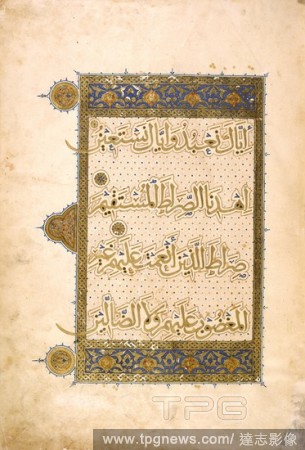 إياك نعبد وإياك نستعين
اهدنا الصراط المستقيم
صراط الذين أنعمت عليهم غير
المغضوب عليهم ولا الضالين
TPG
www.tpgnews.com/達志影像